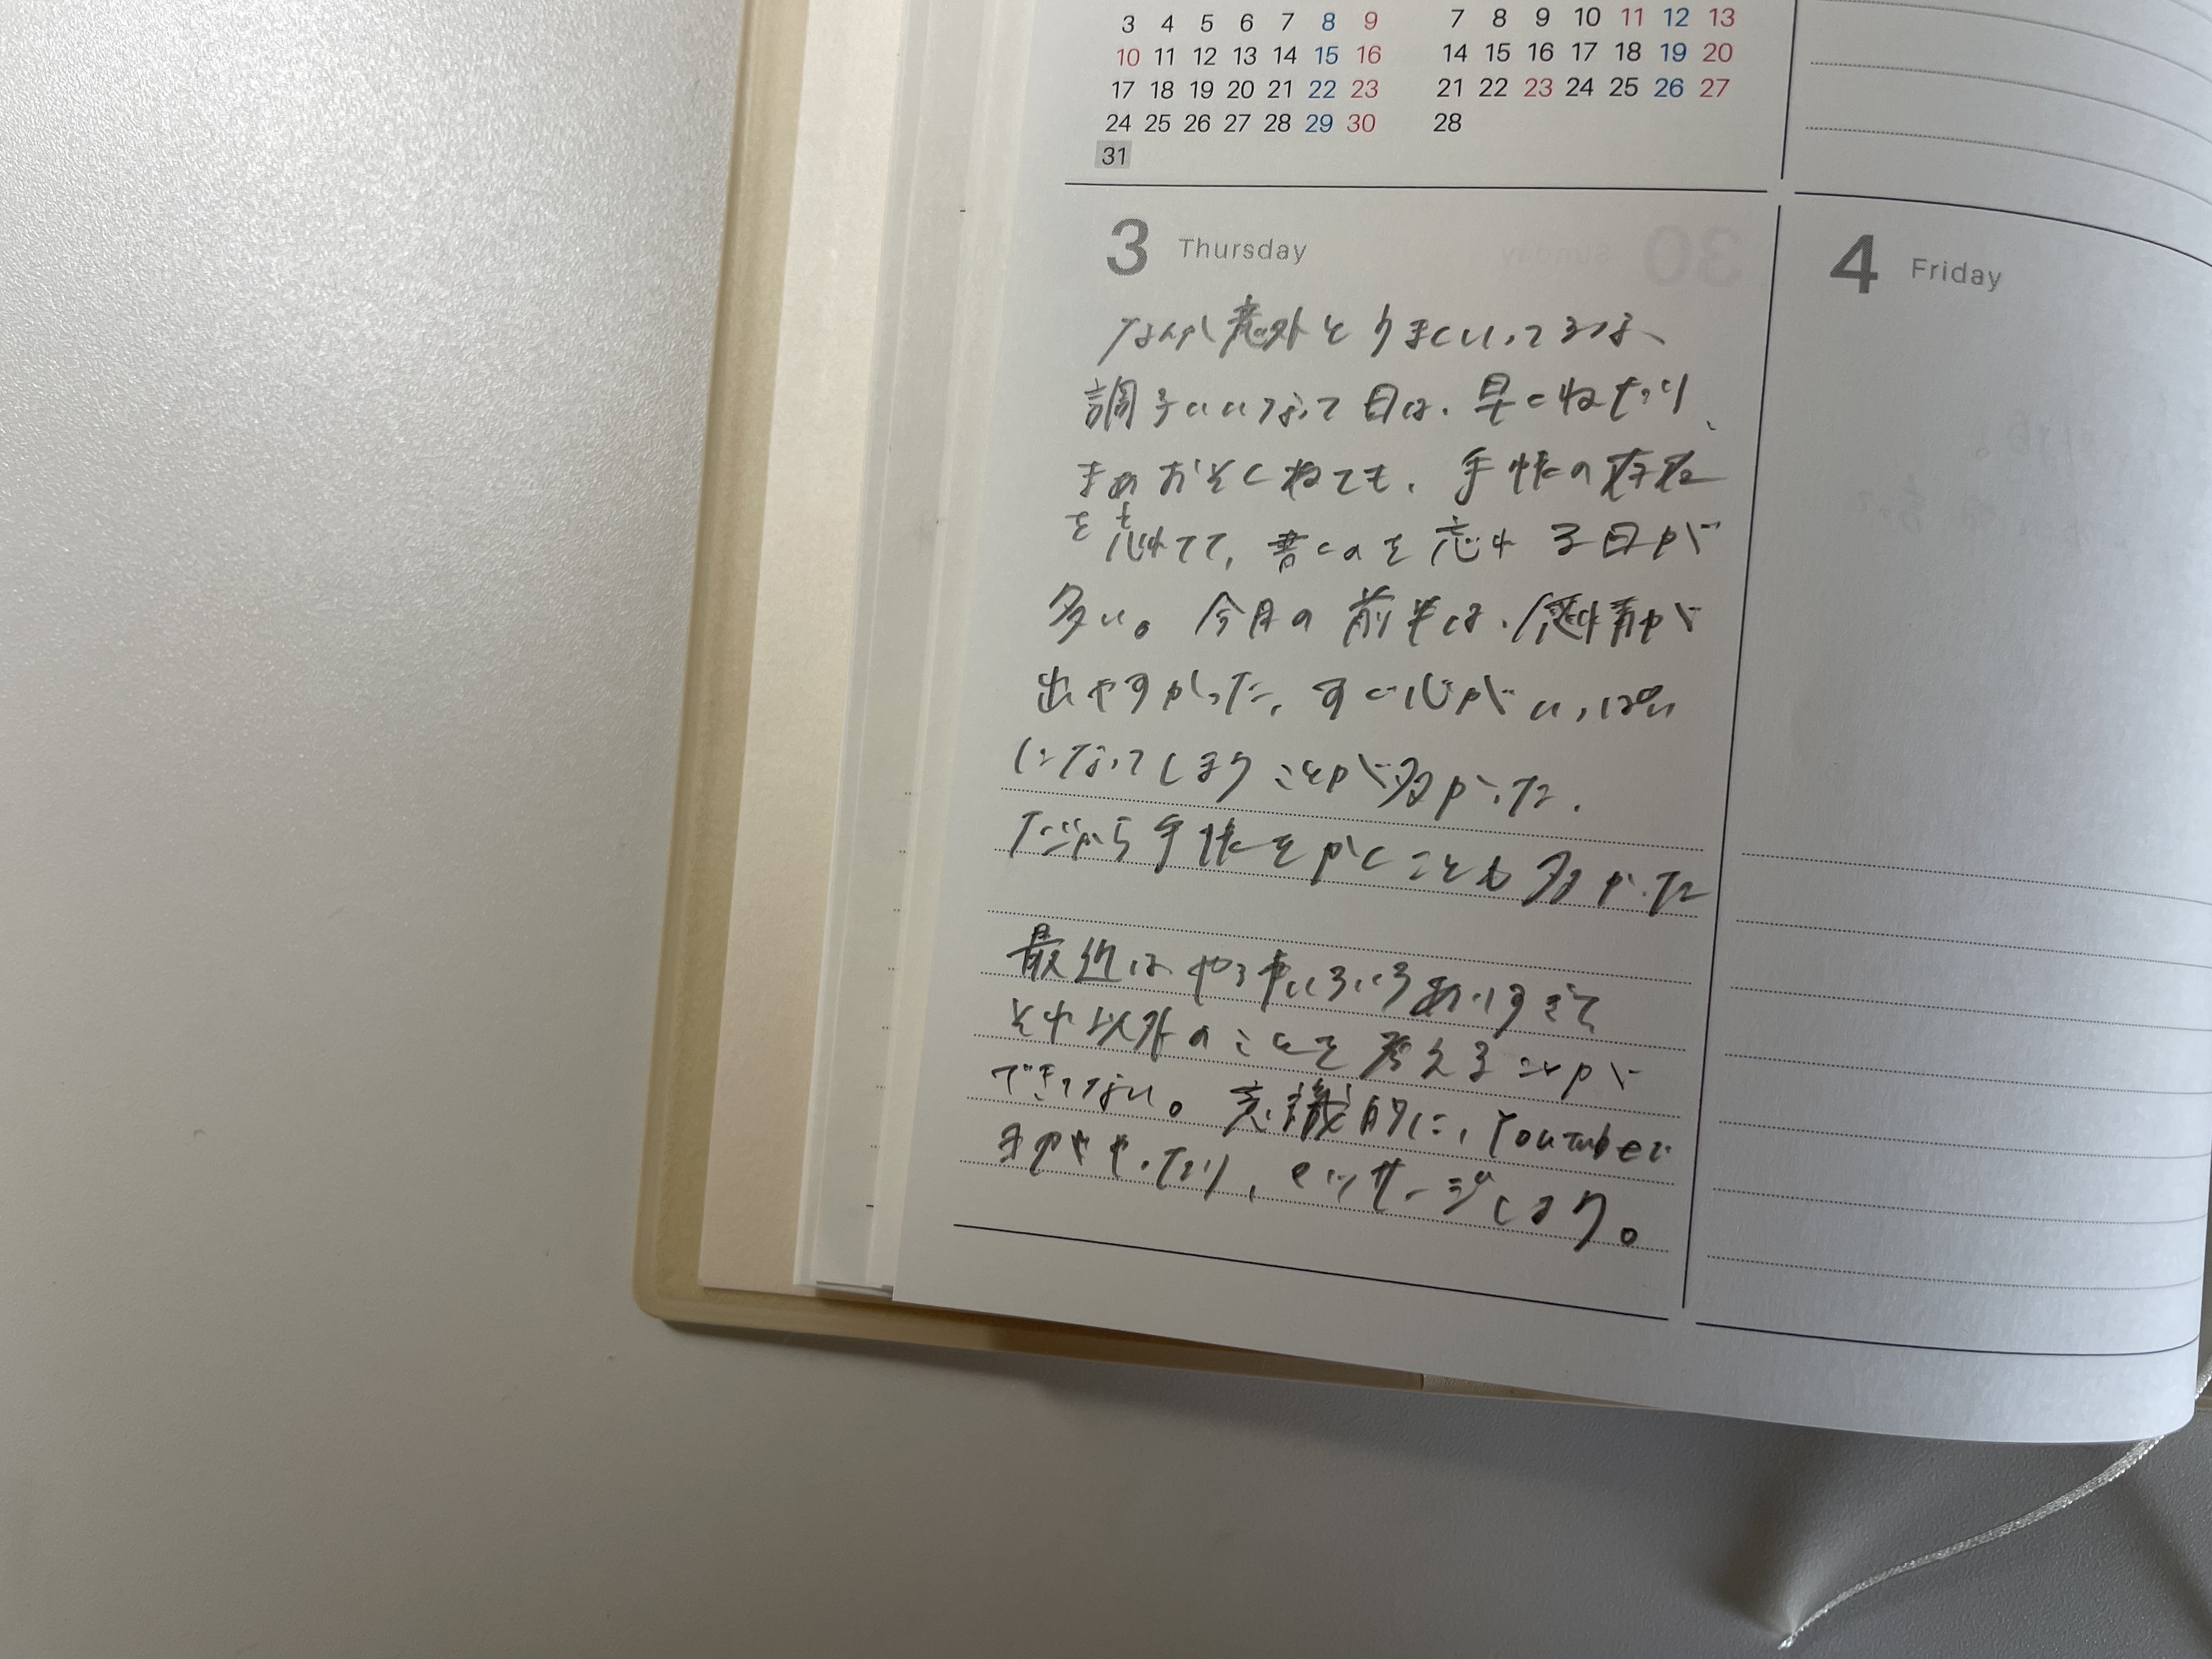 3 4 5 6 7 8 9
10 11 12 13 14 15 16
17 18 19 20 21 22 23
24 25 26 27 28 29 30
31
7 8 9 10 11 12 13
14 15 16 17 18 19 20
21 22 23 24 25 26 27
28
3 Thursday
なんか意外とうまくいってるな、
調子いいなって日は、早くねたり、
まあおそくねても、手帳の存在
を忘れてて、書くのを忘れる日が
多い。今月の前半は、感情が
出やすかった、すぐ心がいっぱい
になってしまうことが多かった。
だから手帳をかくことも多かった
最近はやる事いろいろありすぎて
それ以外のことを考えることが
できてない。意識的に、Youtubeで
まやきやったり、マッサージしよう。
4 Friday
30 Sunday